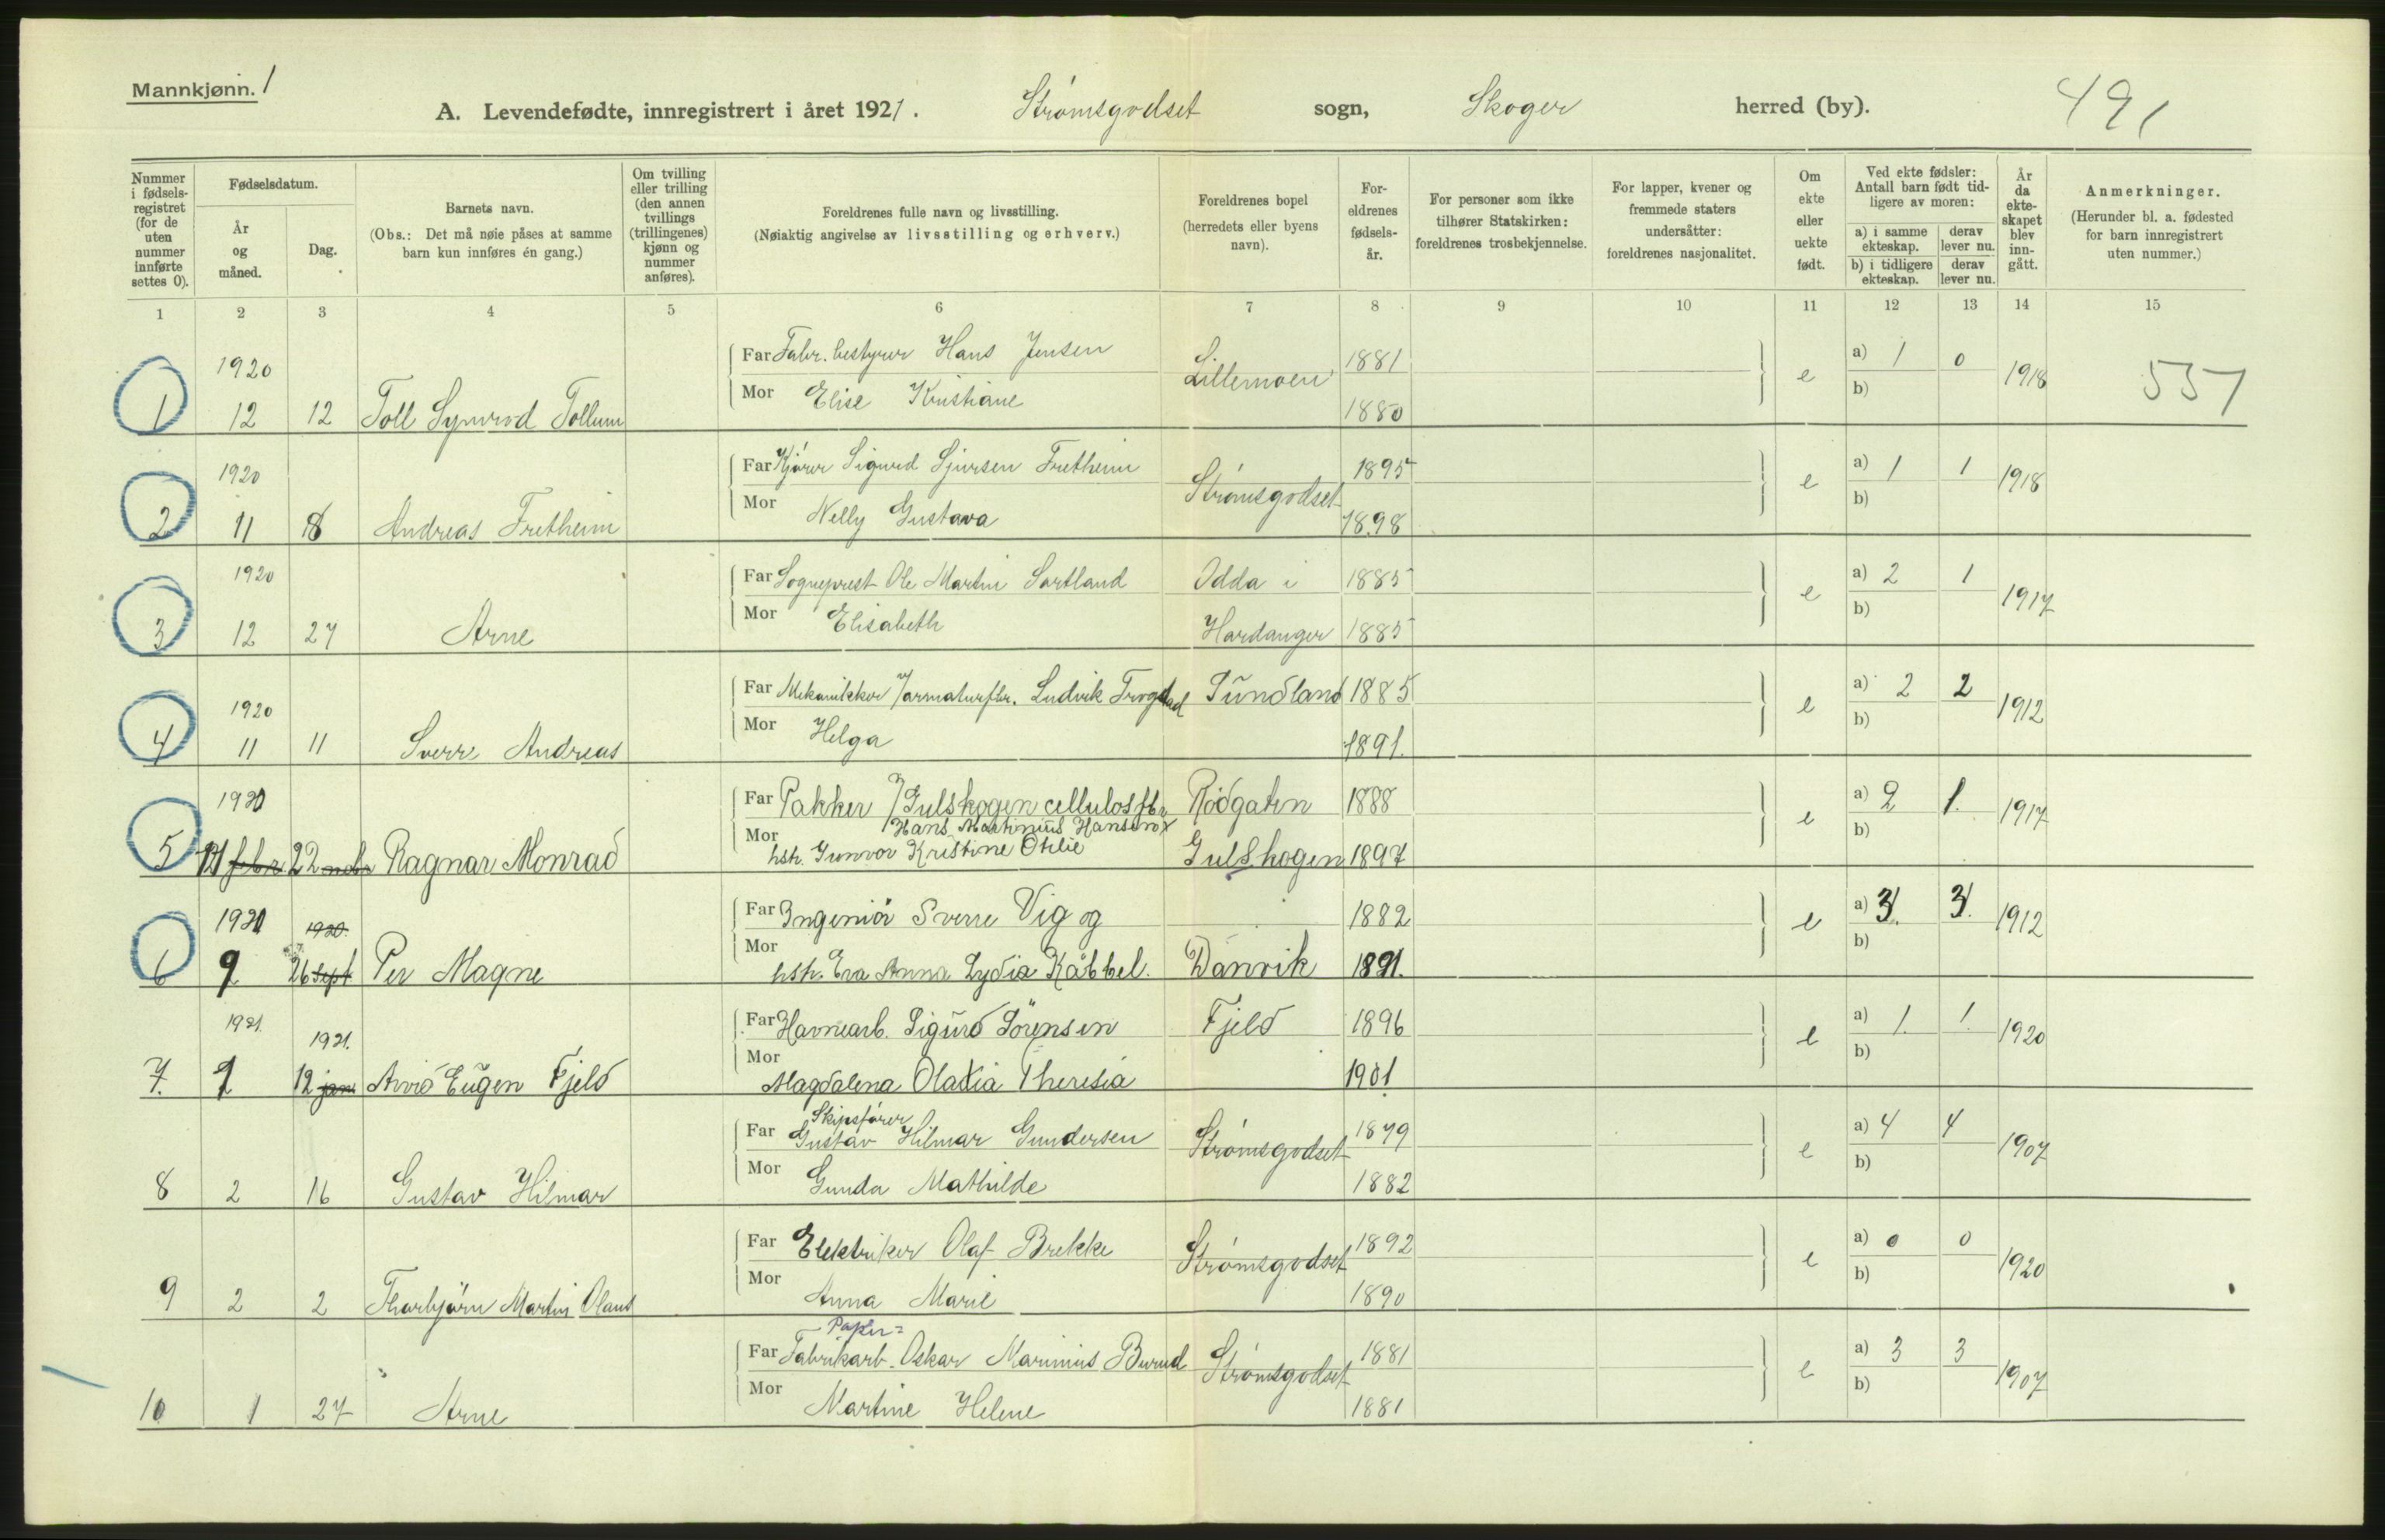 Mannkjønn. 1
A. Levendefødte, innregistrert i året 1921. Strømsgodset sogn, Skoger herred (by). 491
Nummer i fødselsregistret (for de uten nummer innførte settes 0).
Fødselsdatum.
År og måned.
Dag.
Barnets navn.
(Obs.: Det må nøie påses at samme barn kun innføres én gang.)
Om tvilling eller trilling (den annen tvillings (trillingenes) kjønn og nummer anføres).
Foreldrenes fulle navn og livsstilling.
(Nøiaktig angivelse av livsstilling og erhverv.)
Foreldrenes bopel (herredets eller byens navn).
Foreldrenes fødselsår.
For personer som ikke tilhører Statskirken: foreldrenes trosbekjennelse.
For lapper, kvener og fremmede staters undersåtter: foreldrenes nasjonalitet.
Om ekte eller uekte født.
Ved ekte fødsler: Antall barn født tidligere av moren:
a) i samme ekteskap. derav lever nu.
b) i tidligere ekteskap. derav lever nu.
År da ekteskapet blev inngått.
Anmerkninger.
(Herunder bl. a. fødested for barn innregistrert uten nummer.)
1 2 3 4 5 6 7 8 9 10 11 12 13 14 15
1920 Far Fabr. bestyrer Hans Jensen Lillemoen 1881 e a) 1 0 1918 557
1 12 12 Toll Tollum Mor Elise Kristiane 1880 b)
1920 Far Kjører Sigurd Sjursen Fretheim Strømsgodset 1895 e a) 1 1 1918
2 11 18 Andreas Fretheim Mor Nelly Gustava 1898 b)
1920 Far Sogneprest Ole Martin Sartland Odda i 1885 e a) 2 1 1917
3 12 27 Arne Mor Elisabeth Hardanger 1885 b)
1920 Far Mekanikker v/armaturfbr. Ludvik Trogstad Sundland 1885 e a) 2 2 1912
4 11 11 Sverre Andreas Mor Helga 1891. b)
1920 Far Pakker v/Gulskogen cellulosfbr Rødgaten 1888 e a) 2 1. 1917
Hans Martinius Hansen
5 12 febr 22 Ragnar Monrad Mor hstr. Gunvor Kristine Otilie Gulskogen 1897 b)
1920 1920. Far Ingeniør Sverre Vig og 1882 e a) 3. 3. 1912
6 9 26 sept Per Magne Mor hstr. Eva Anna Lydia Käbbel. Danvik 1891. b)
1921. 1921. Far Havnearb. Sigurd Sörensen Fjeld 1896 e a) 1. 1. 1920
7. 1 12 jan Arvid Eugen Fjeld Mor Magdalena Olaxia Theresia 1901 b)
Skipsfører
Far Gustav Hilmar Gundersen Strømsgodset 1879 e a) 4 4 1907
8 2 16 Gustav Hilmar Mor Gunda Mathilde 1882 b)
Far Elektriker Olaf Brekke Strømsgodset 1892 e a) 0 0 1920
9 2 2 Thorbjørn Martin Olaus Mor Anna Marie 1890 b)
Papir=
Far Fabrikarb. Oskar Marinius Burud Strømsgodset 1881 e a) 3 3 1907
10 1 27 Arne Mor Martine Helene 1881 b)